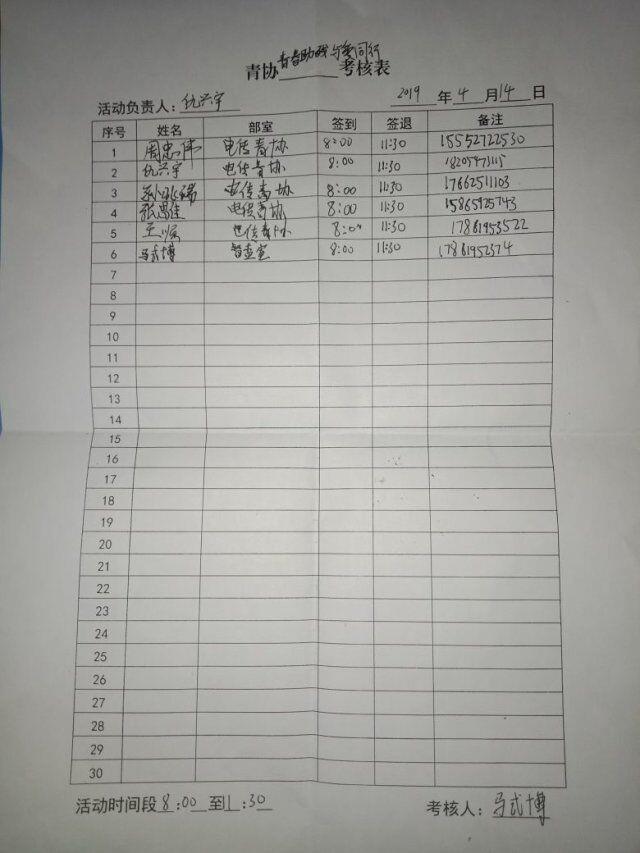 青协青春助残与爱同行考核表
活动负责人：仇兴宇 2019 年 4 月 14 日
序号 姓名 部室 签到 签退 备注
1 周忠伟 电传青协 8:00 11:30 15552722530
2 仇兴宇 电传青协 8:00 11:30 18205473115
3 电传青协 8:00 11:30 17662511103
4 张思佳 电传青协 8:00 11:30 15865925743
5 王顺 电传青协 8:00 11:30 17861953522
6 马武博 督查室 8:00 11:30 17861952374
7
8
9
10
11
12
13
14
15
16
17
18
19
20
21
22
23
24
25
26
27
28
29
30
活动时间段 8:00 至 1:30 考核人：马武博